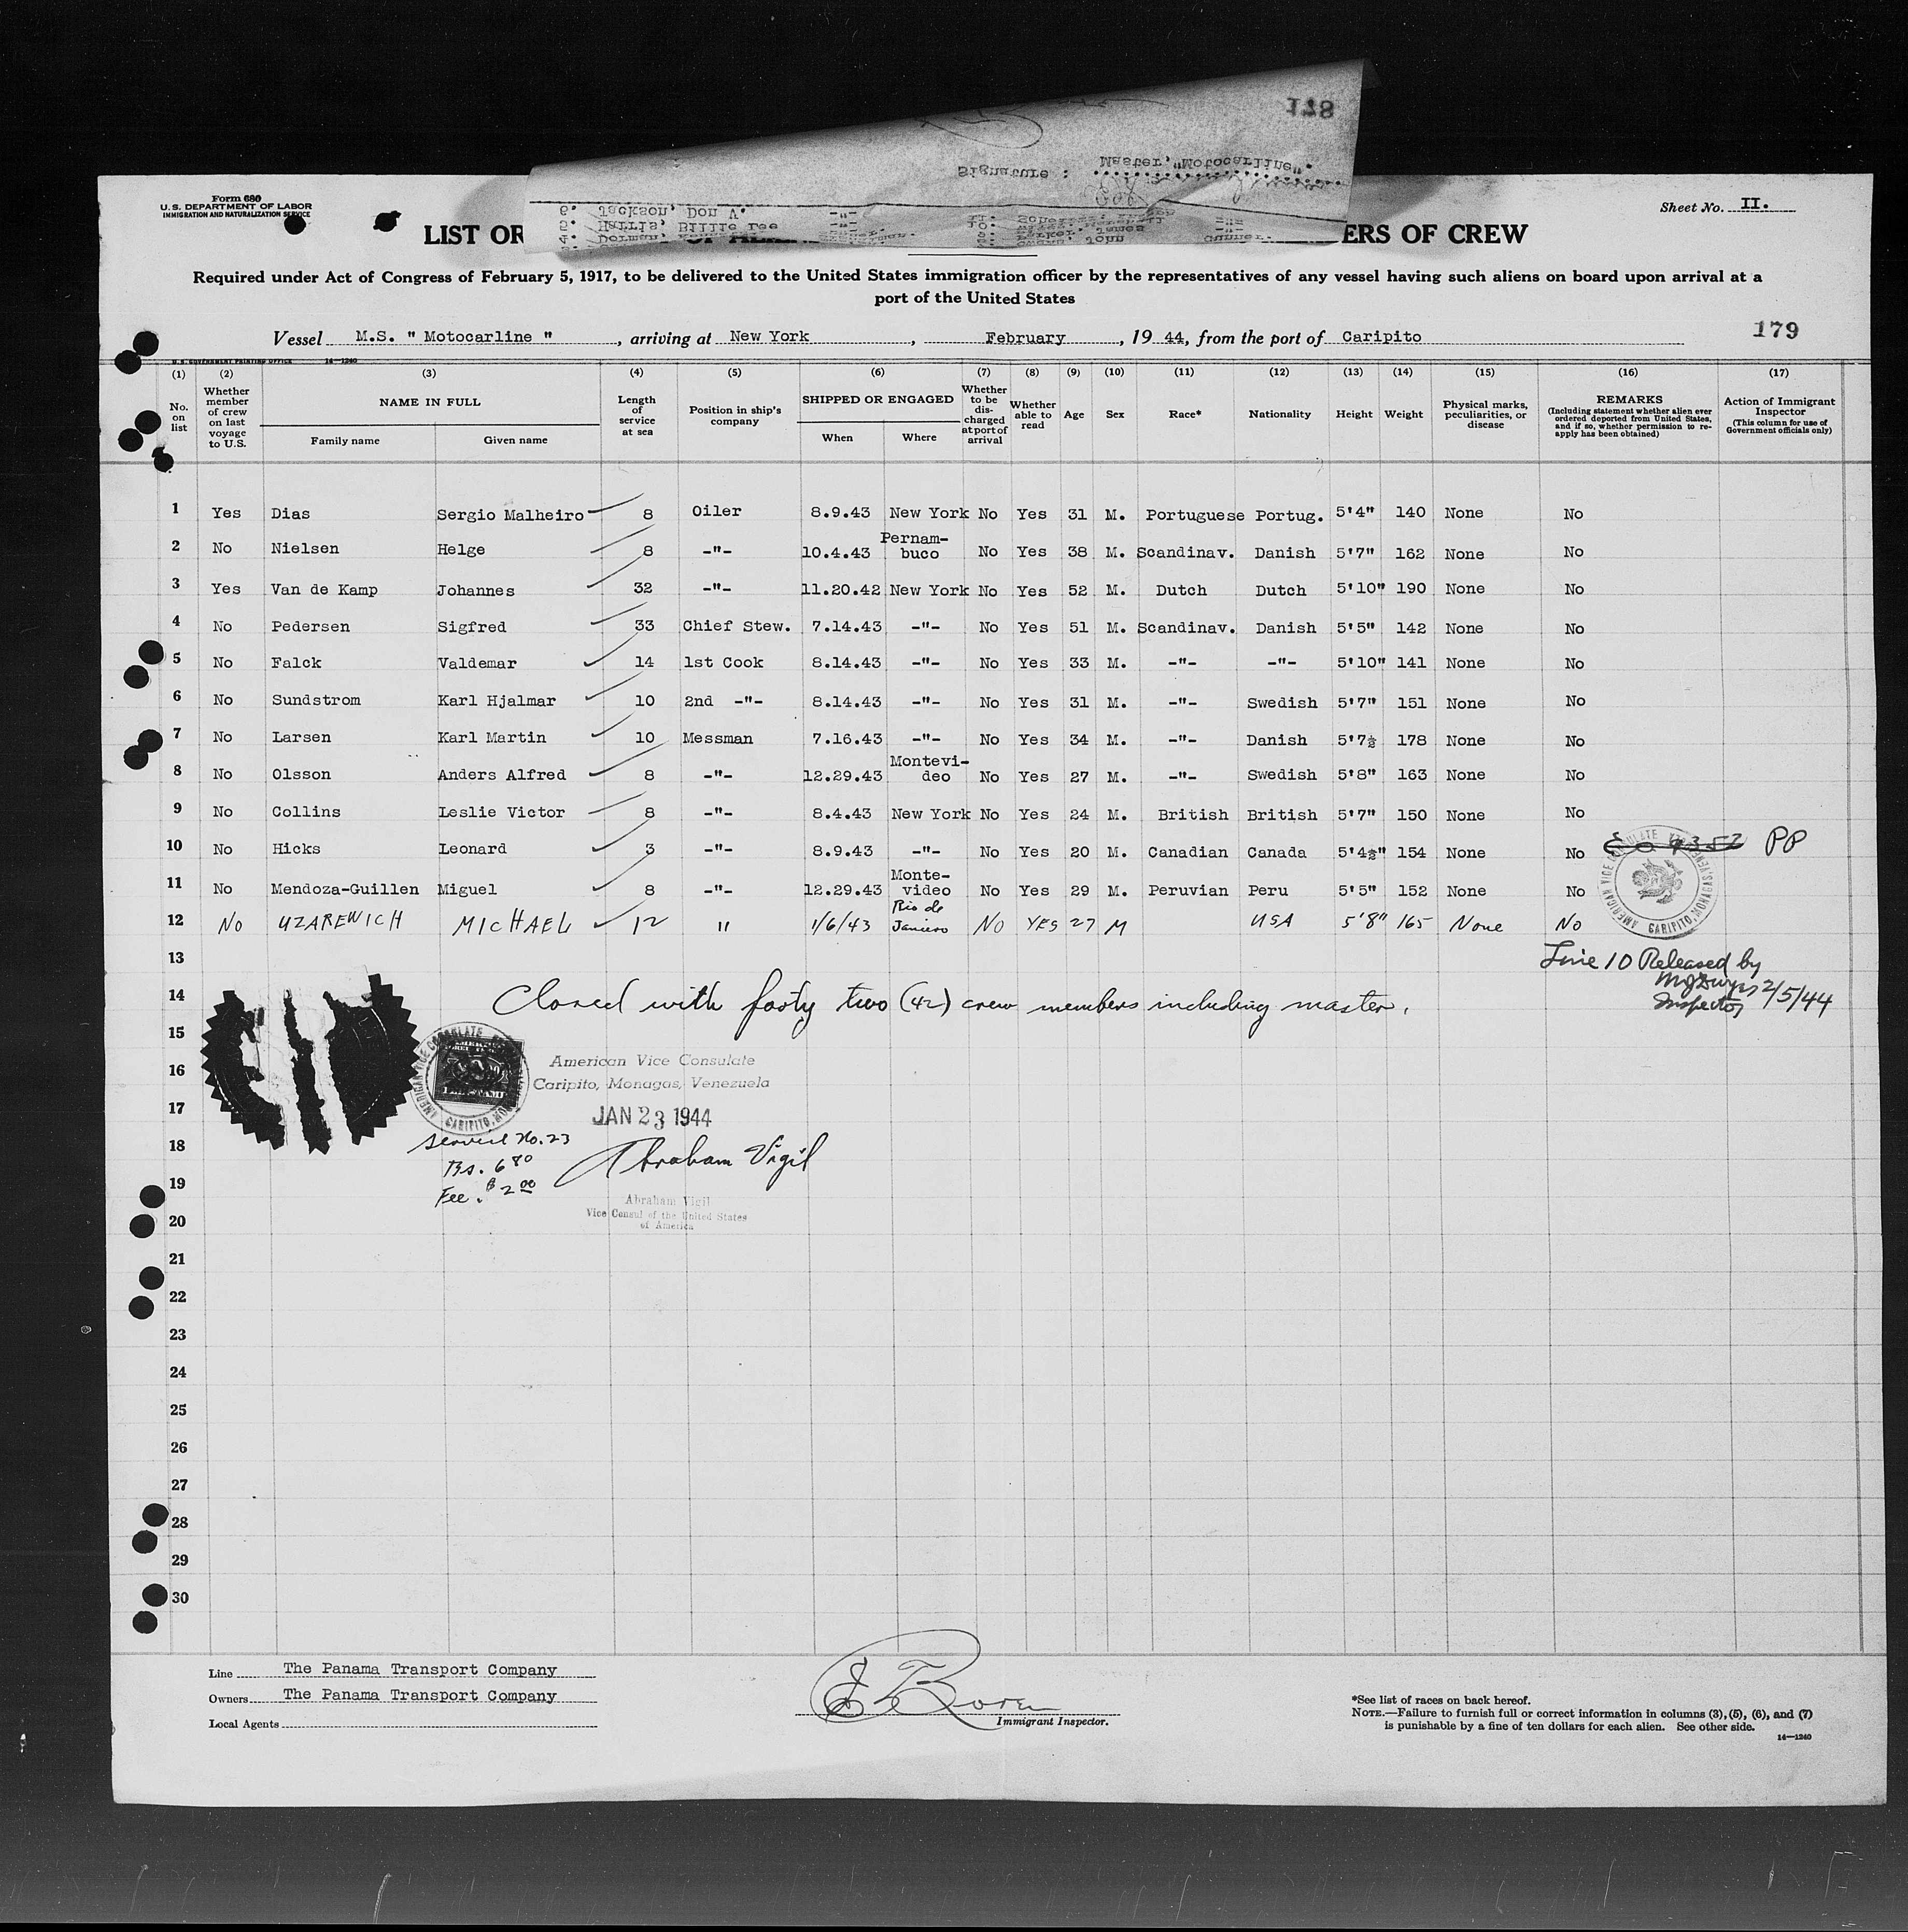 178
Master, "Motocarline".
Signature :
6. Jackson, Don V. -"-
5. Harris, Billie Lee -"-
John Gunner.
Form 680
U.S. DEPARTMENT OF LABOR
IMMIGRATION AND NATURALIZATION SERVICE
Sheet No. II.
LIST OR ERS OF CREW
Required under Act of Congress of February 5, 1917, to be delivered to the United States immigration officer by the representatives of any vessel having such aliens on board upon arrival at a
port of the United States
Vessel M.S. " Motocarline " , arriving at New York , February , 19 44, from the port of Caripito
179
U.S. GOVERNMENT PRINTING OFFICE 14—1240
(1) (2) (3) (4) (5) (6) (7) (8) (9) (10) (11) (12) (13) (14) (15) (16) (17)
No. on list
Whether member of crew on last voyage to U.S.
NAME IN FULL
Family name Given name
Length of service at sea
Position in ship's company
SHIPPED OR ENGAGED
When Where
Whether to be discharged at port of arrival
Whether able to read
Age
Sex
Race*
Nationality
Height
Weight
Physical marks, peculiarities, or disease
REMARKS
(Including statement whether alien ever ordered deported from United States, and if so, whether permission to reapply has been obtained)
Action of Immigrant Inspector
(This column for use of Government officials only)
1 Yes Dias Sergio Malheiro 8 Oiler 8.9.43 New York No Yes 31 M. Portuguese Portug. 5'4" 140 None No
2 No Nielsen Helge 8 -"- 10.4.43 Pernam-buco No Yes 38 M. Scandinav. Danish 5'7" 162 None No
3 Yes Van de Kamp Johannes 32 -"- 11.20.42 New York No Yes 52 M. Dutch Dutch 5'10" 190 None No
4 No Pedersen Sigfred 33 Chief Stew. 7.14.43 -"- No Yes 51 M. Scandinav. Danish 5'5" 142 None No
5 No Falck Valdemar 14 1st Cook 8.14.43 -"- No Yes 33 M. -"- -"- 5'10" 141 None No
6 No Sundstrom Karl Hjalmar 10 2nd -"- 8.14.43 -"- No Yes 31 M. -"- Swedish 5'7" 151 None No
7 No Larsen Karl Martin 10 Messman 7.16.43 -"- No Yes 34 M. -"- Danish 5'7½ 178 None No
8 No Olsson Anders Alfred 8 -"- 12.29.43 Montevi-deo No Yes 27 M. -"- Swedish 5'8" 163 None No
9 No Collins Leslie Victor 8 -"- 8.4.43 New York No Yes 24 M. British British 5'7" 150 None No
10 No Hicks Leonard 3 -"- 8.9.43 -"- No Yes 20 M. Canadian Canada 5'4½" 154 None No PP
11 No Mendoza-Guillen Miguel 8 -"- 12.29.43 Monte-video No Yes 29 M. Peruvian Peru 5'5" 152 None No
12 No UZAREWICH MICHAEL 12 " 1/6/43 Rio de Janiero NO YES 27 M USA 5'8" 165 None No
AMERICAN VICE CONSULATE CARIPITO, MONAGAS, VENEZUELA
13
Line 10 Released by
2/5/44
Inspector
14
Closed with forty two (42) crew members including master.
15
American Vice Consulate
16
Caripito, Monagas, Venezuela
17
JAN 23 1944
18
Service No. 23
Abraham Vigil
Bs. 6 80
19
Fee. $ 2 00
Abraham Vigil
Vice Consul of the United States
of America
20
21
22
23
24
25
26
27
28
29
30
Line The Panama Transport Company
Owners The Panama Transport Company
Local Agents
Immigrant Inspector.
*See list of races on back hereof.
NOTE.—Failure to furnish full or correct information in columns (3), (5), (6), and (7)
is punishable by a fine of ten dollars for each alien. See other side.
14—1240